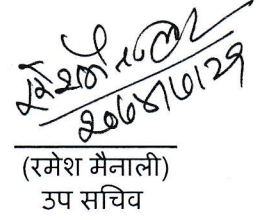 २०७४।७।२९
(रमेश मैनाली)
उप सचिव